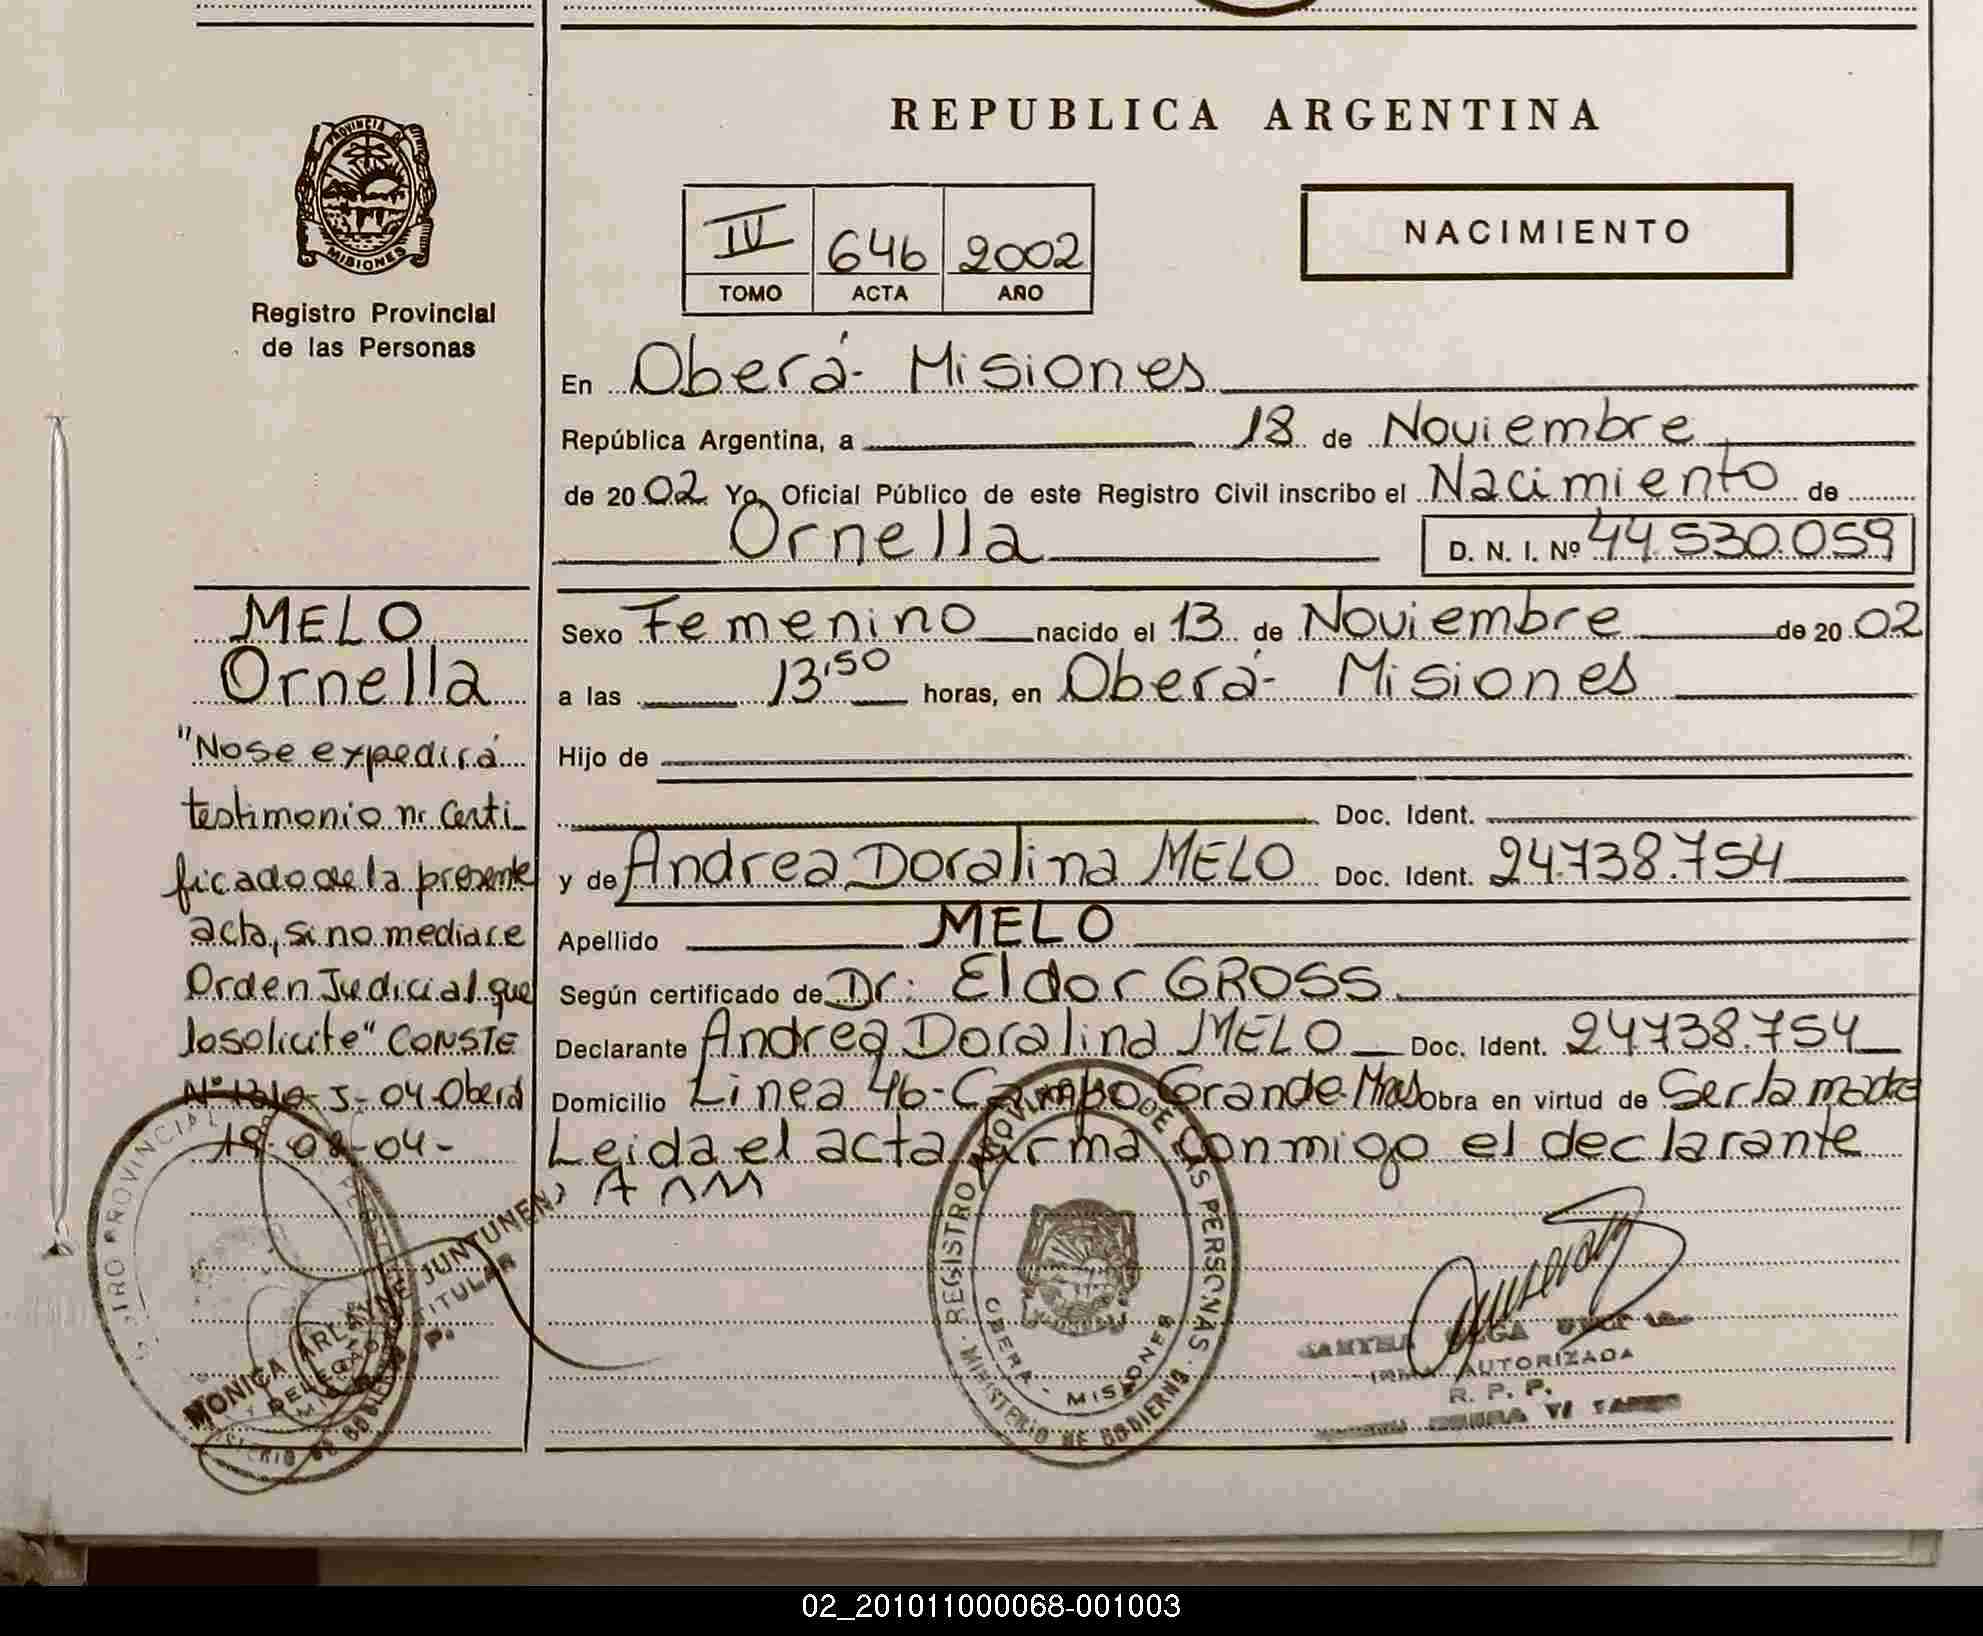 REPUBLICA ARGENTINA
PROVINCIA DE
MISIONES
Registro Provincial
de las Personas
IV 646 2002
TOMO ACTA AÑO
NACIMIENTO
En Oberá- Misiones
República Argentina, a 18 de Noviembre
de 2002 Yo, Oficial Público de este Registro Civil inscribo el Nacimiento de
Ornella D. N. I. Nº 44.530.059
MELO
Ornella
"No se expedirá
testimonio ni Certi
ficado de la presente
acta, si no mediare
Orden Judicial que
lo solicite" CONSTE
-04-Oberá
-04-
Sexo Femenino nacido el 13 de Noviembre de 2002
a las 13'50 horas, en Oberá- Misiones
Hijo de
Doc. Ident.
y de Andrea Doralina MELO Doc. Ident. 24.738.754
Apellido MELO
Según certificado de Dr: Eldor GROSS
Declarante Andrea Doralina MELO Doc. Ident. 24738.754
Domicilio Linea 46-Campo Grande-Mnes Obra en virtud de Ser la madre
Leida el acta firma conmigo el declarante
REGISTRO PROVINCIAL DE LAS PERSONAS
OBERÁ - MISIONES
MINISTERIO DE GOBIERNO
MONICA ARLAYNE JUNTUNEN
DELEGADO TITULAR
AUTORIZADA
R. P. P.
02_201011000068-001003